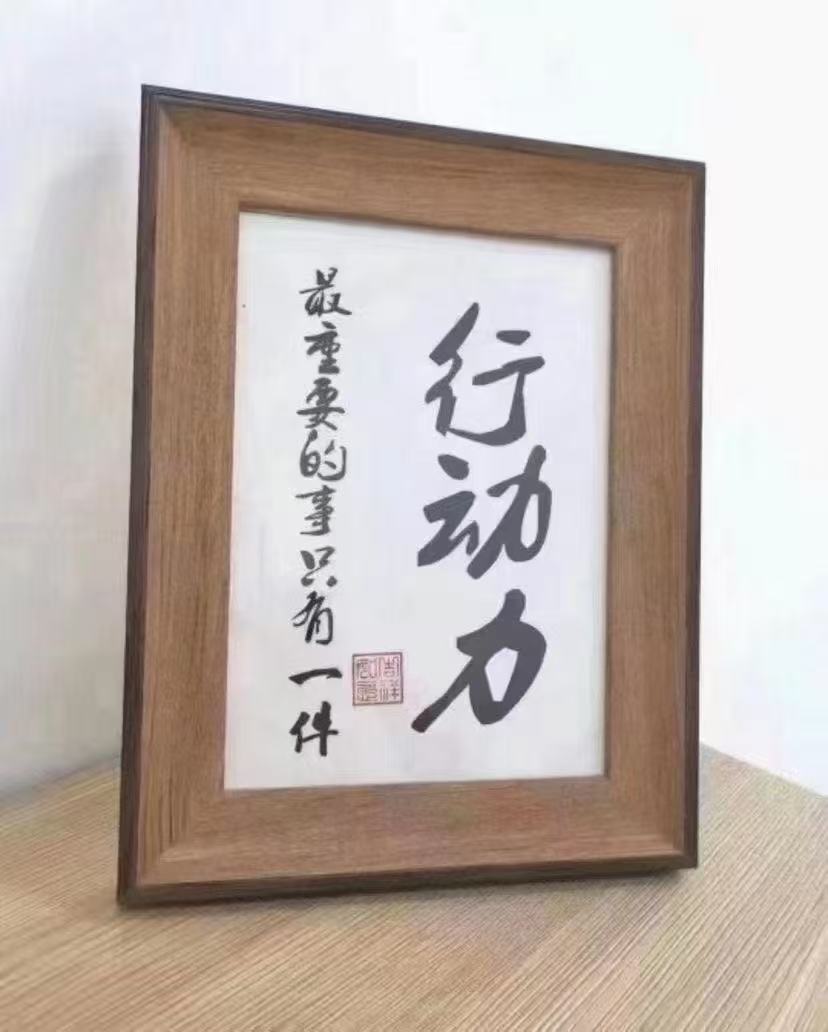 行动力
最重要的事只有一件